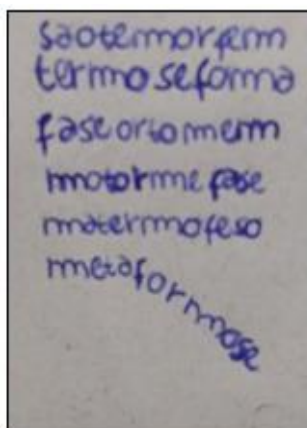 saotermorfem
termoseforma
faseortomem
motormefase
matermofeso
metaformose